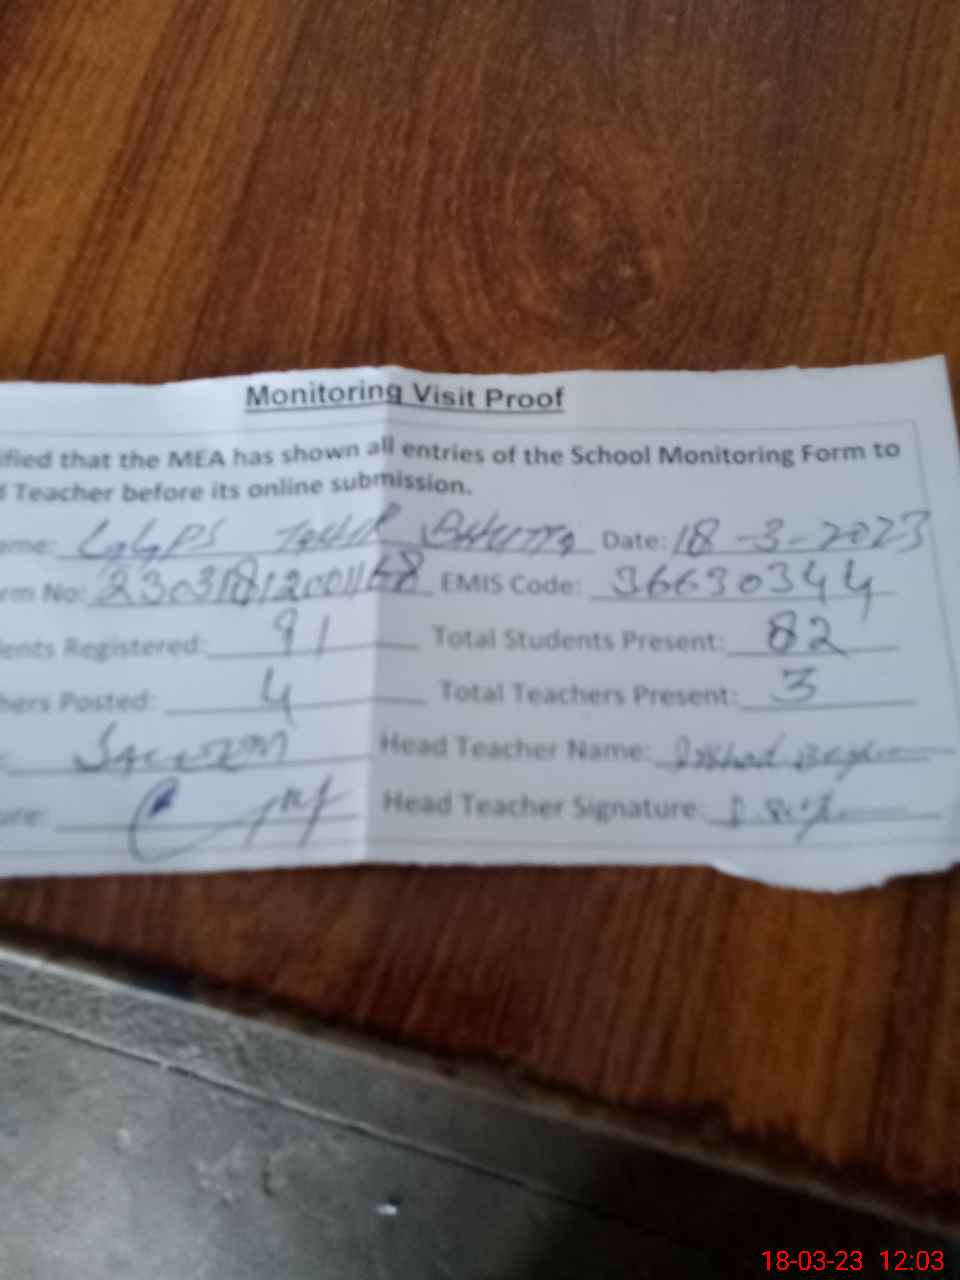 Monitoring Visit Proof
ified that the MEA has shown all entries of the School Monitoring Form to
d Teacher before its online submission.
ame: GGPS Tahir Bhutta Date: 18-3-2023
rm No: EMIS Code: 36630344
ents Registered: 91 Total Students Present: 82
hers Posted: 4 Total Teachers Present: 3
Head Teacher Name: Irshad
ure: Head Teacher Signature:
18-03-23 12:03